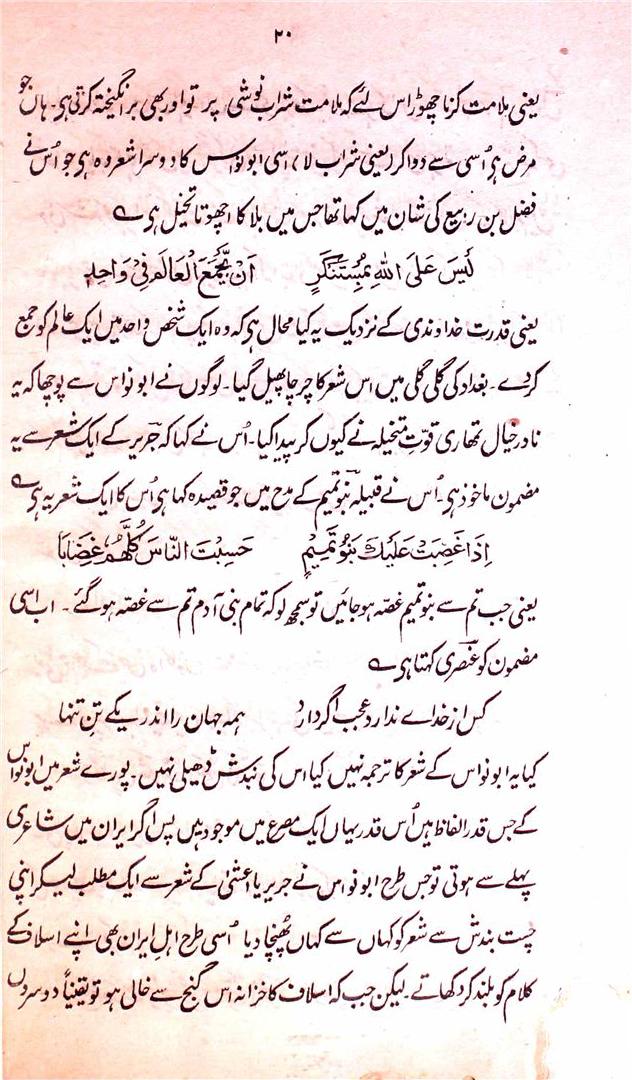 ۲۰
یعنی ملامت کرنا چھوڑ اس لئے کہ ملامت شراب نوشی پر تو اور بھی برانگیختہ کرتی ہی۔ ہاں جو
مرض ہی اُسی سے دوا کر (یعنی شراب لا) اسی ابو نواس کا دوسرا شعر وہ ہی جو اُس نے
فضل بن ربیع کی شان میں کہا تھا جس میں بلا کا اچھوتا تخیل ہی ؎
لَیْسَ عَلَی اللّٰہِ بِمُسْتَنْکَرٍ اَنْ یَّجْمَعَ الْعَالَمَ فِیْ وَاحِدٖ
یعنی قدرت خداوندی کے نزدیک یہ کیا محال ہی کہ وہ ایک شخص واحد میں ایک عالم کو جمع
کردے۔ بغداد کی گلی گلی میں اس شعر کا چرچا پھیل گیا۔ لوگوں نے ابو نواس سے پوچھا کہ یہ
نادر خیال تمھاری قوّتِ متخیلہ نے کیوں کر پیدا کیا۔ اُس نے کہا کہ جریر کے ایک شعر سے یہ
مضمون ماخوذ ہی۔ اُس نے قبیلہ بنو تمیم کے مدح میں جو قصیدہ کہا ہی اُس کا ایک شعر یہ ہی ؎
اِذَا غَضِبَتْ عَلَیْكَ بَنُوْ تَمِیْمٍ حَسِبْتَ النَّاسَ کُلَّھُمْ غِضَابَا
یعنی جب تم سے بنو تمیم غصہ ہو جائیں تو سمجھ لو کہ تمام بنی آدم تم سے غصہ ہو گئے۔ اب اسی
مضمون کو عنصری کہتا ہی ؎
کس از خداے ندارد عجب اگر دارد ہمہ جہان را اندر یکے تنِ تنہا
کیا یہ ابو نواس کے شعر کا ترجمہ نہیں کیا اس کی بندش ڈھیلی نہیں۔ پورے شعر میں ابو نواس
کے جس قدر الفاظ ہیں اُس قدر یہاں ایک مصرع میں موجود ہیں پس اگر ایران میں شاعری
پہلے سے ہوتی تو جس طرح ابو نواس نے جریر یا اعشیٰ کے شعر سے ایک مطلب لیکر اپنی
چست بندش سے شعر کو کہاں سے کہاں پُہنچا دیا اُسی طرح اہلِ ایران بھی اپنے اسلاف کے
کلام کو بلند کر دکھاتے۔ لیکن جب کہ اسلاف کا خزانہ اس گنج سے خالی ہو تو یقیناً دوسروں